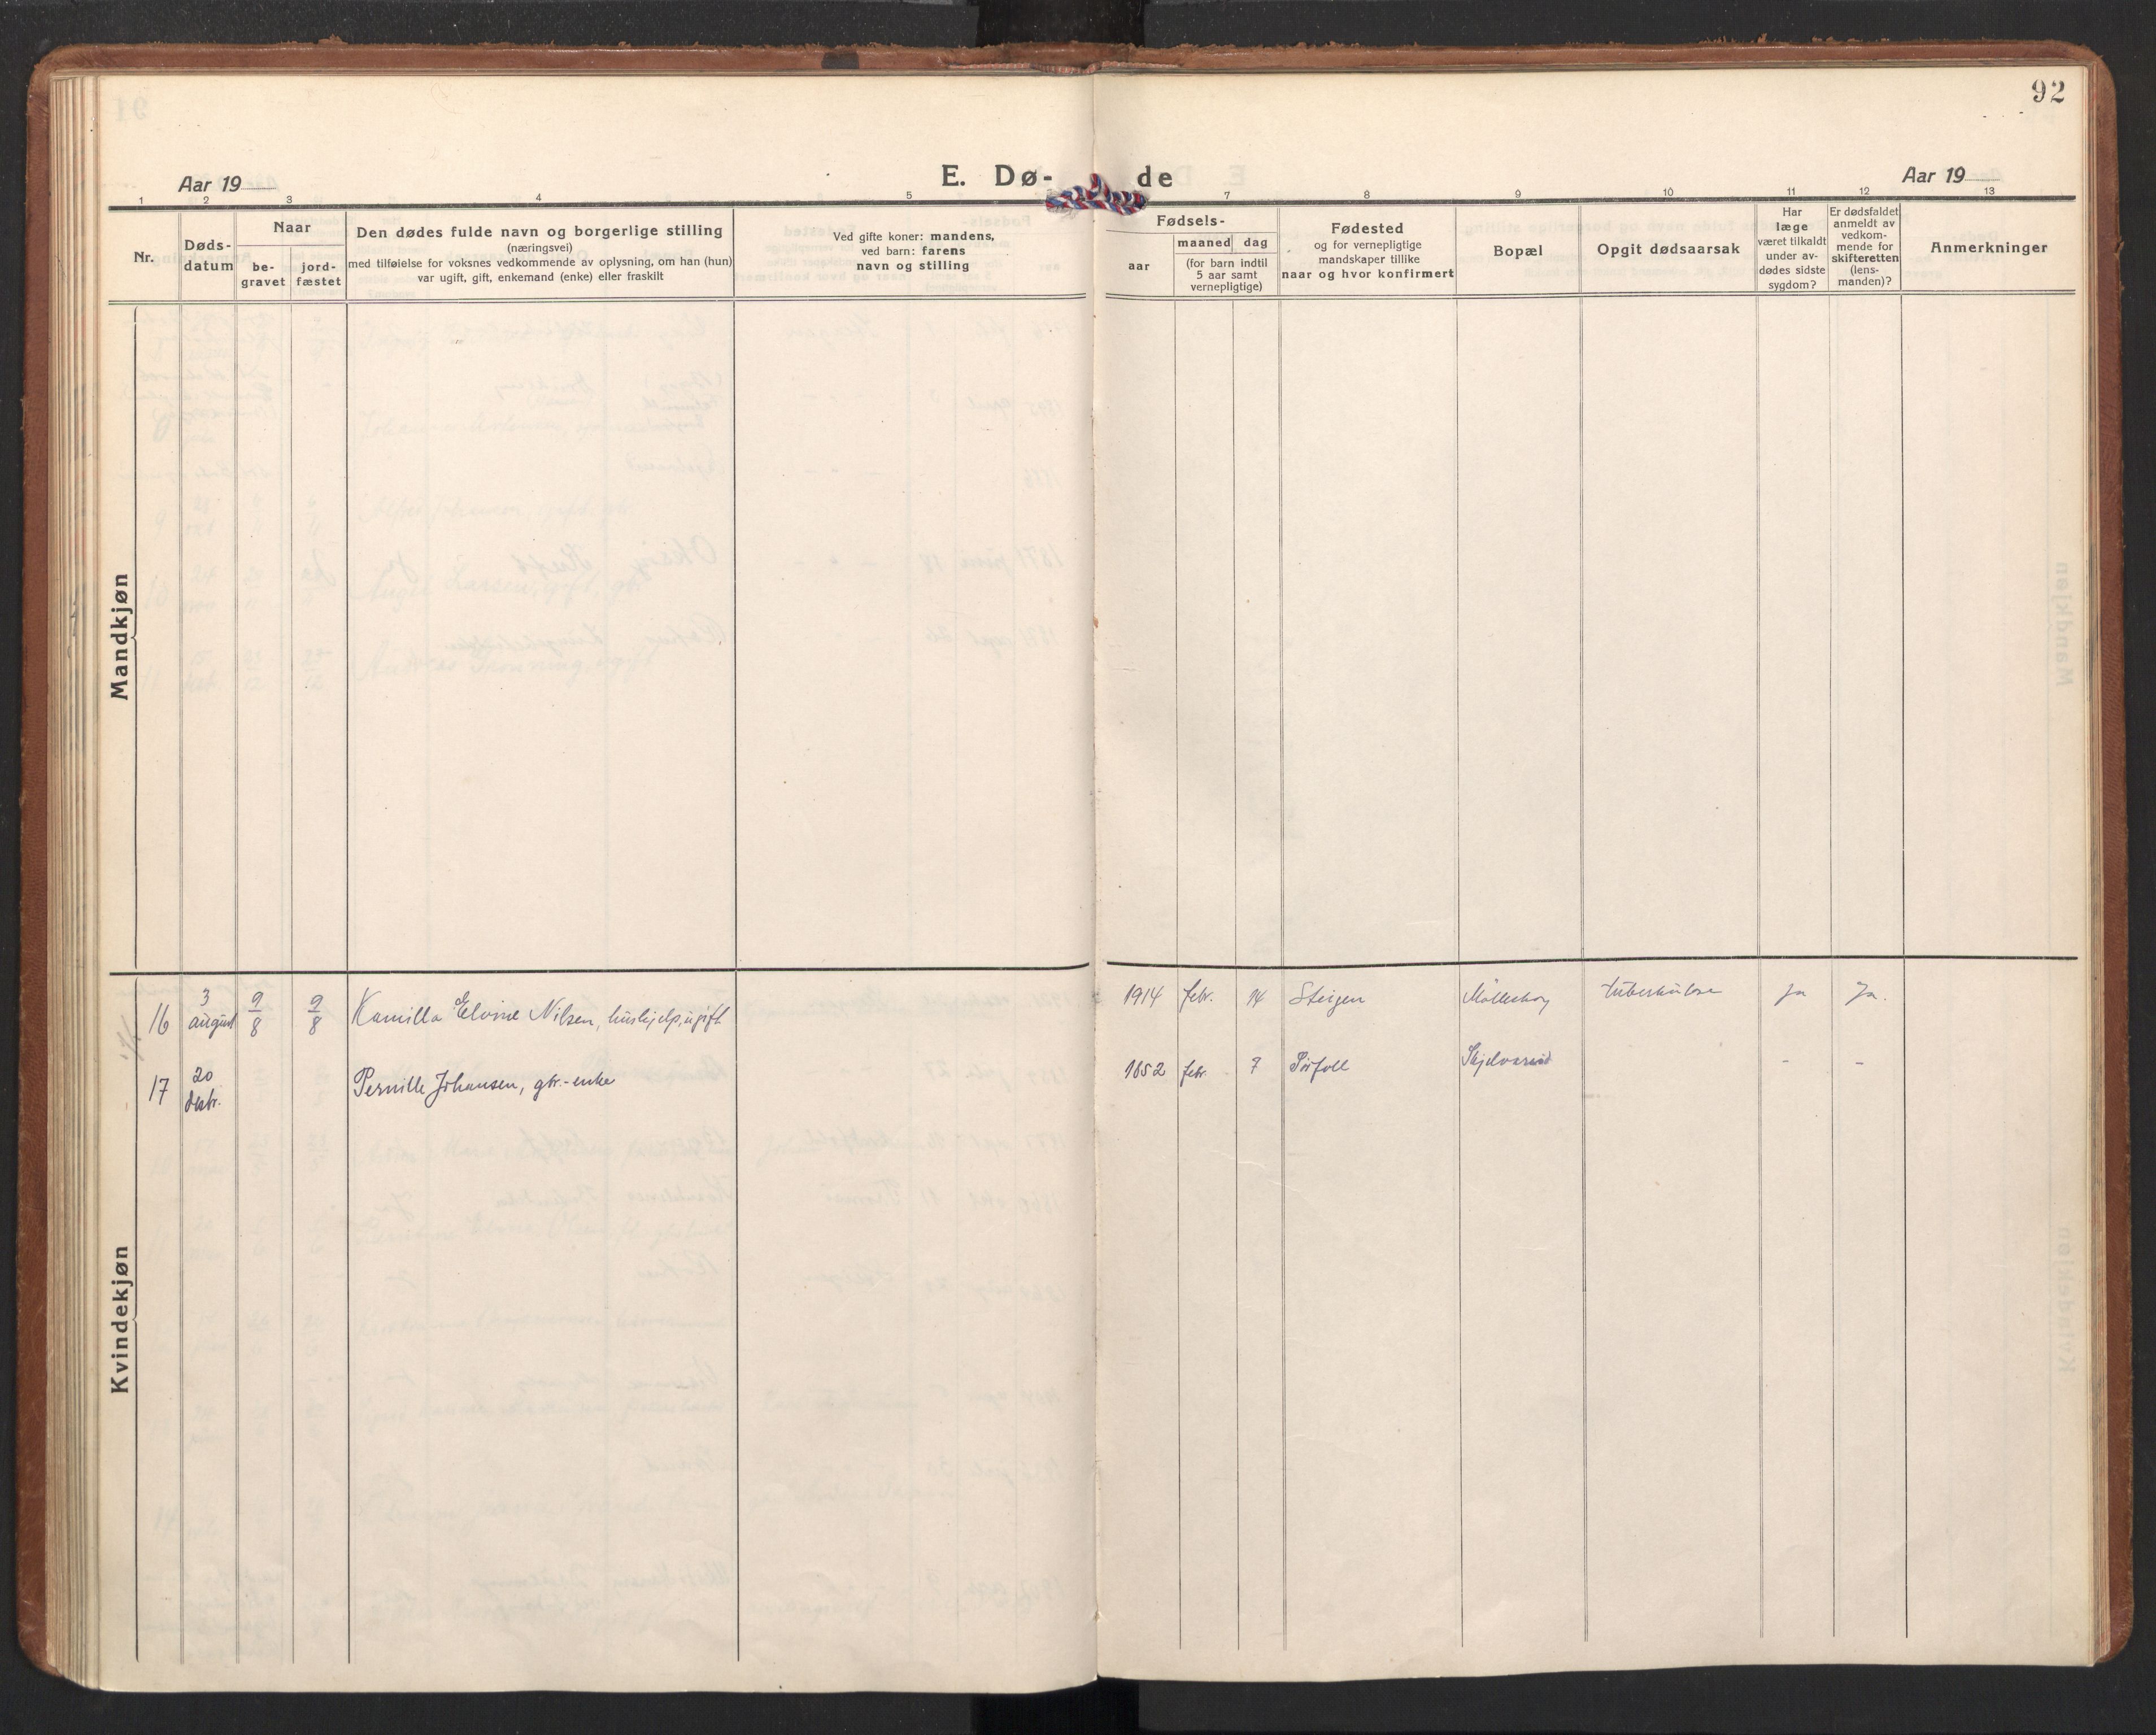 92
Aar 19
E. Dø-
de
Aar 19
1 2 3 4 5 7 8 9 10 11 12 13
Nr.
Døds-
datum
Naar
be-
gravet
jord-
fæstet
Den dødes fulde navn og borgerlige stilling
(næringsvei)
med tilføielse for voksnes vedkommende av oplysning, om han (hun)
var ugift, gift, enkemand (enke) eller fraskilt
Ved gifte koner: mandens,
ved barn: farens
navn og stilling
Fødsels-
aar
maaned dag
(for barn indtil
5 aar samt
vernepligtige)
Fødested
og for vernepligtige
mandskaper tillike
naar og hvor konfirmert
Bopæl
Opgit dødsaarsak
Har
læge
været tilkaldt
under av-
dødes sidste
sygdom?
Er dødsfaldet
anmeldt av
vedkom-
mende for
skifteretten
(lens-
manden)?
Anmerkninger
Mandkjøn
Kvindekjøn
16 3 august 9/8 9/8 Kamilla Elvine Nilsen, hushjelp, ugift 1914 febr. 14 Steigen tuberkulose ja Ja.
17 20 desbr. Pernille Johansen, gbr.-enke 1852 febr. 7 Skjelvareid - -